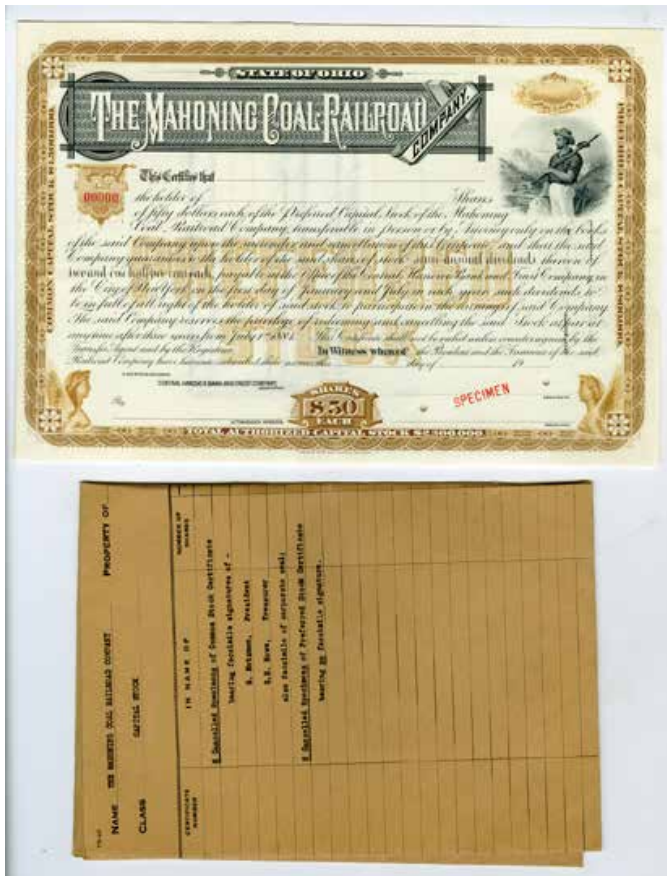 STATE OF OHIO
THE MAHONING COAL RAILROAD COMPANY
This Certifies that
00000
the holder of Shares
of fifty dollars each of the Preferred Capital Stock of the Mahoning
Coal Railroad Company, transferable in person or by Attorney only on the books
of the said Company upon the surrender and cancellation of this Certificate and that the said
Company guarantees to the holder of the said shares of stock semi annual dividends thereon of
two and one half per cent each, payable at the Office of the Central Hanover Bank and Trust Company in
the City of New York on the first day of January and July in each year such dividends to
be in full of all right of the holder of said stock to participate in the earnings of said Company
The said Company reserves the privilege of redeeming and cancelling the said Stock at par at
any time after three years from July 1st 1884. This Certificate shall not be valid unless countersigned by the
Transfer Agent and by the Registrar.
In Witness whereof the President and the Treasurer of the said
Railroad Company have hereunto
day of 19
CENTRAL HANOVER BANK AND TRUST COMPANY,
SHARES
$50
EACH
SPECIMEN
TOTAL AUTHORIZED CAPITAL STOCK $2,500,000.
COMMON CAPITAL STOCK
PREFERRED CAPITAL STOCK
NAME THE MAHONING COAL RAILROAD COMPANY PROPERTY OF
CLASS CAPITAL STOCK
CERTIFICATE NUMBER
IN NAME OF
NUMBER OF SHARES
Cancelled Specimens of Common Stock Certificate
bearing facsimile signatures of -
President
Treasurer
also facsimile of corporate seal;
Cancelled Specimens of Preferred Stock Certificate
bearing no facsimile signature.